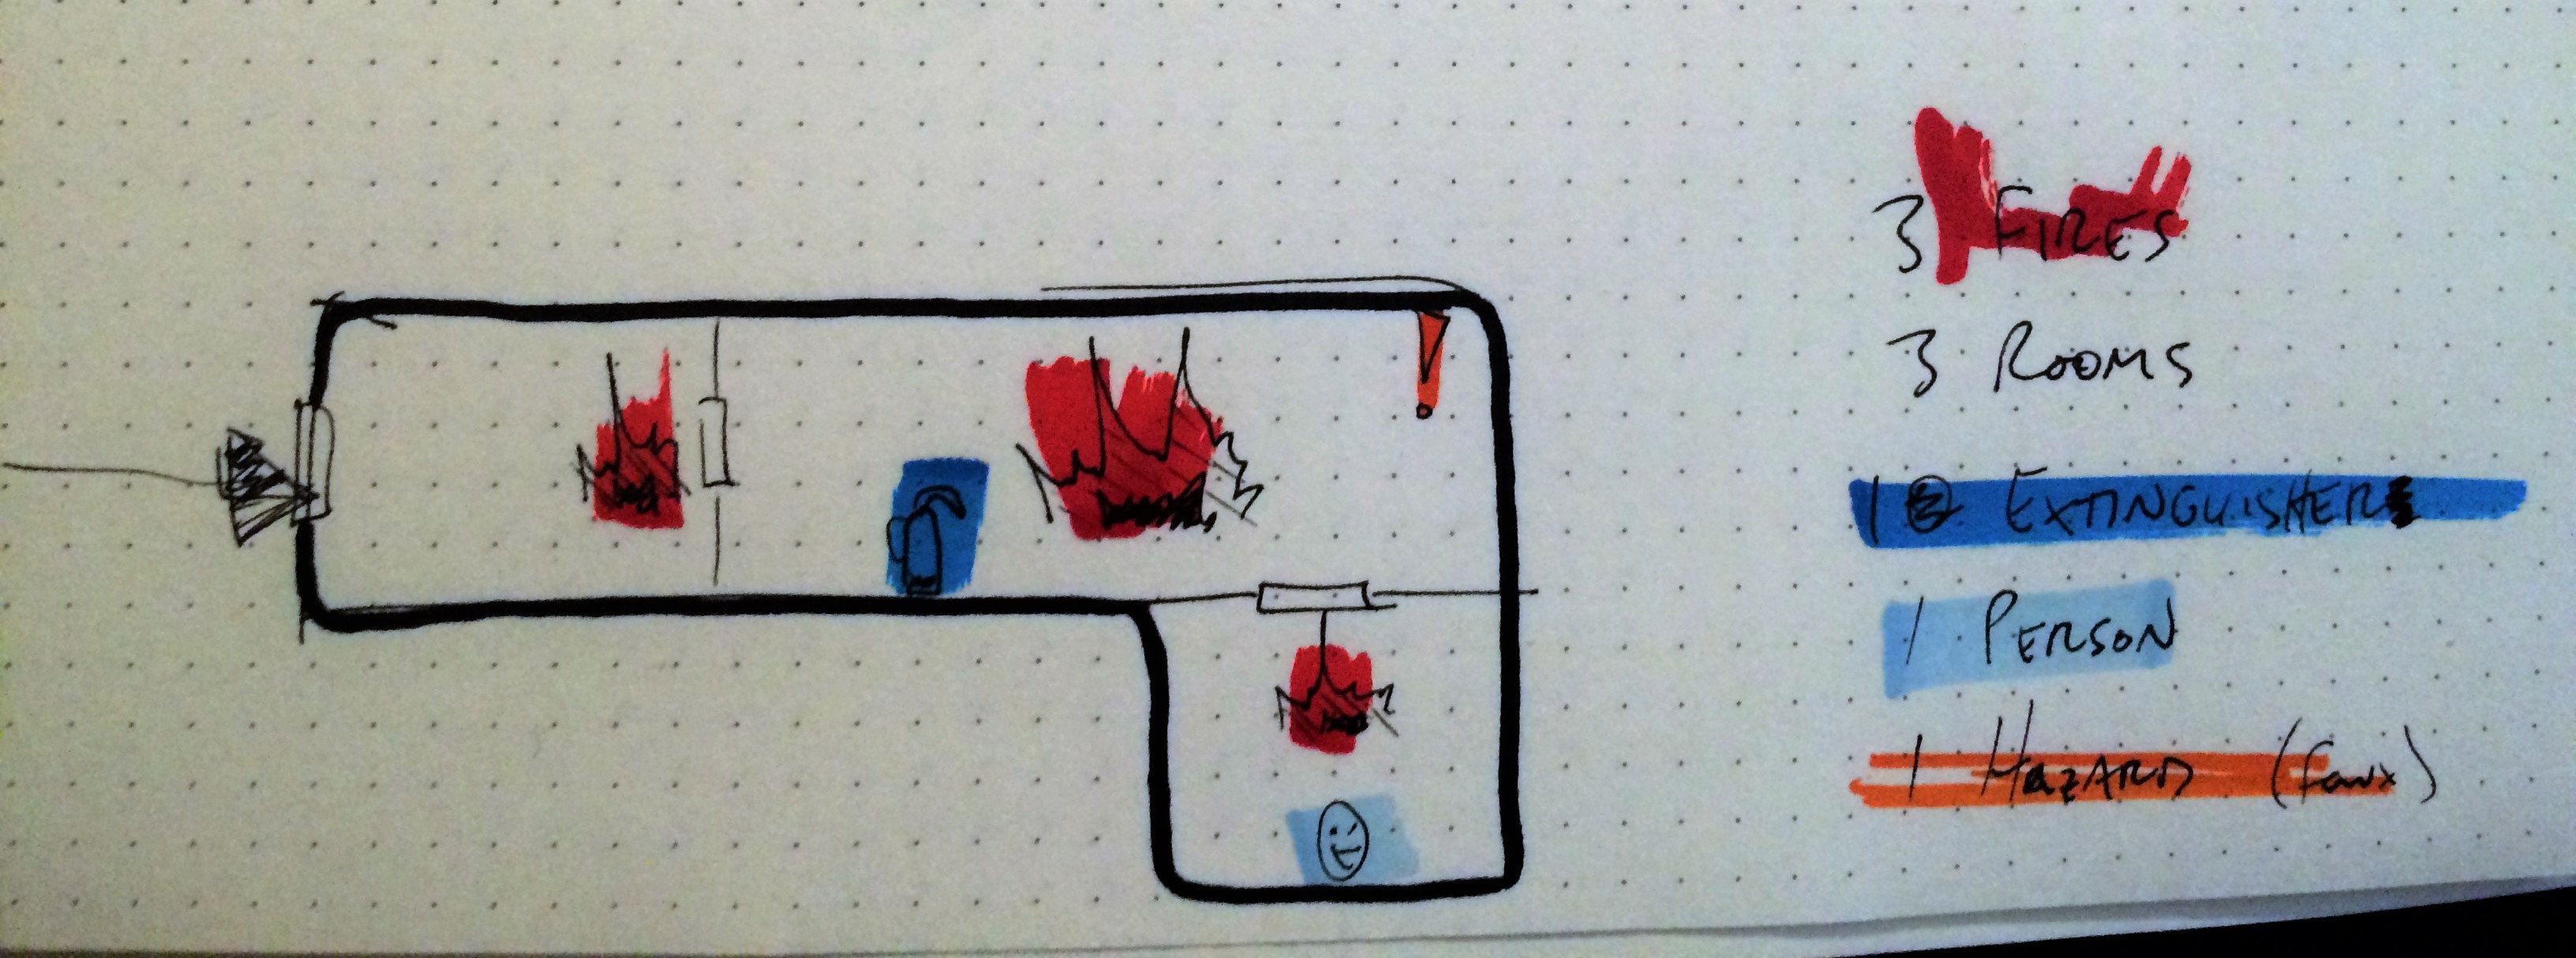 3 FIRES
3 ROOMS
1 EXTINGUISHER
1 PERSON
1 HAZARD (faux)